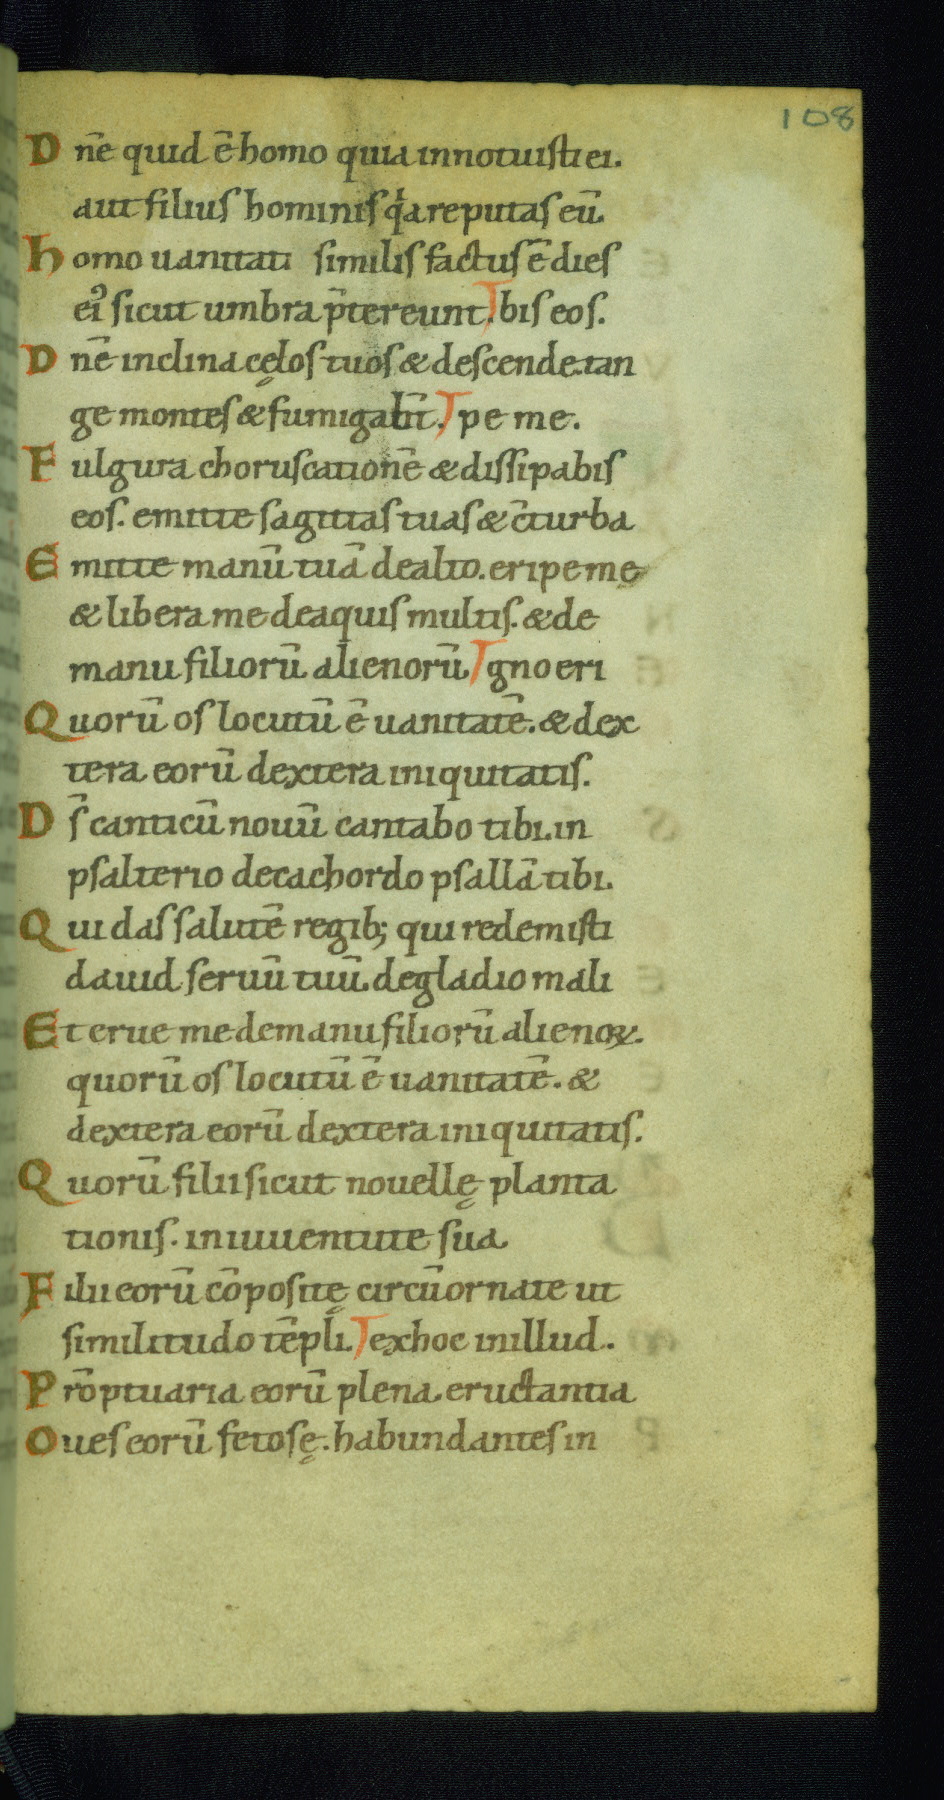 108
Dn̄e quid ē homo quia innotuisti ei.
aut filius hominis qͥa reputas eū.
homo uanitati similis factus ē dies
eiꝰ sicut umbra p̄tereunt. bis eos.
Dn̄e inclina cęlos tuos & descende. tan
ge montes & fumigabn̄t. pe me.
Fulgura choruscationē & dissipabis
eos. emitte sagittas tuas & c̄turba
Emitte manū tuā de alto. eripe me
& libera me de aquis multis. & de
manu filiorū alienorū gno eri
Quorū os locutū ē uanitatē. & dex
tera eorū dextera iniquitatis.
Ds̄ canticū nouū cantabo tibi. in
psalterio decachordo psallā tibi.
Qui das salutē regib; qui redemisti
dauid seruū tuū de gladio mali
Et erue me de manu filiorū alienoꝝ.
quorū os locutū ē uanitatē. &
dextera eorū dextera iniquitatis.
Quorū filii sicut nouellę planta
tionis. in iuuentute sua
Filii eorū cōpositę circūornate ut
similitudo tēpli. ex hoc in illud.
Prōptuaria eorū plena. eructantia
Oues eorū fetosę. habundantes in